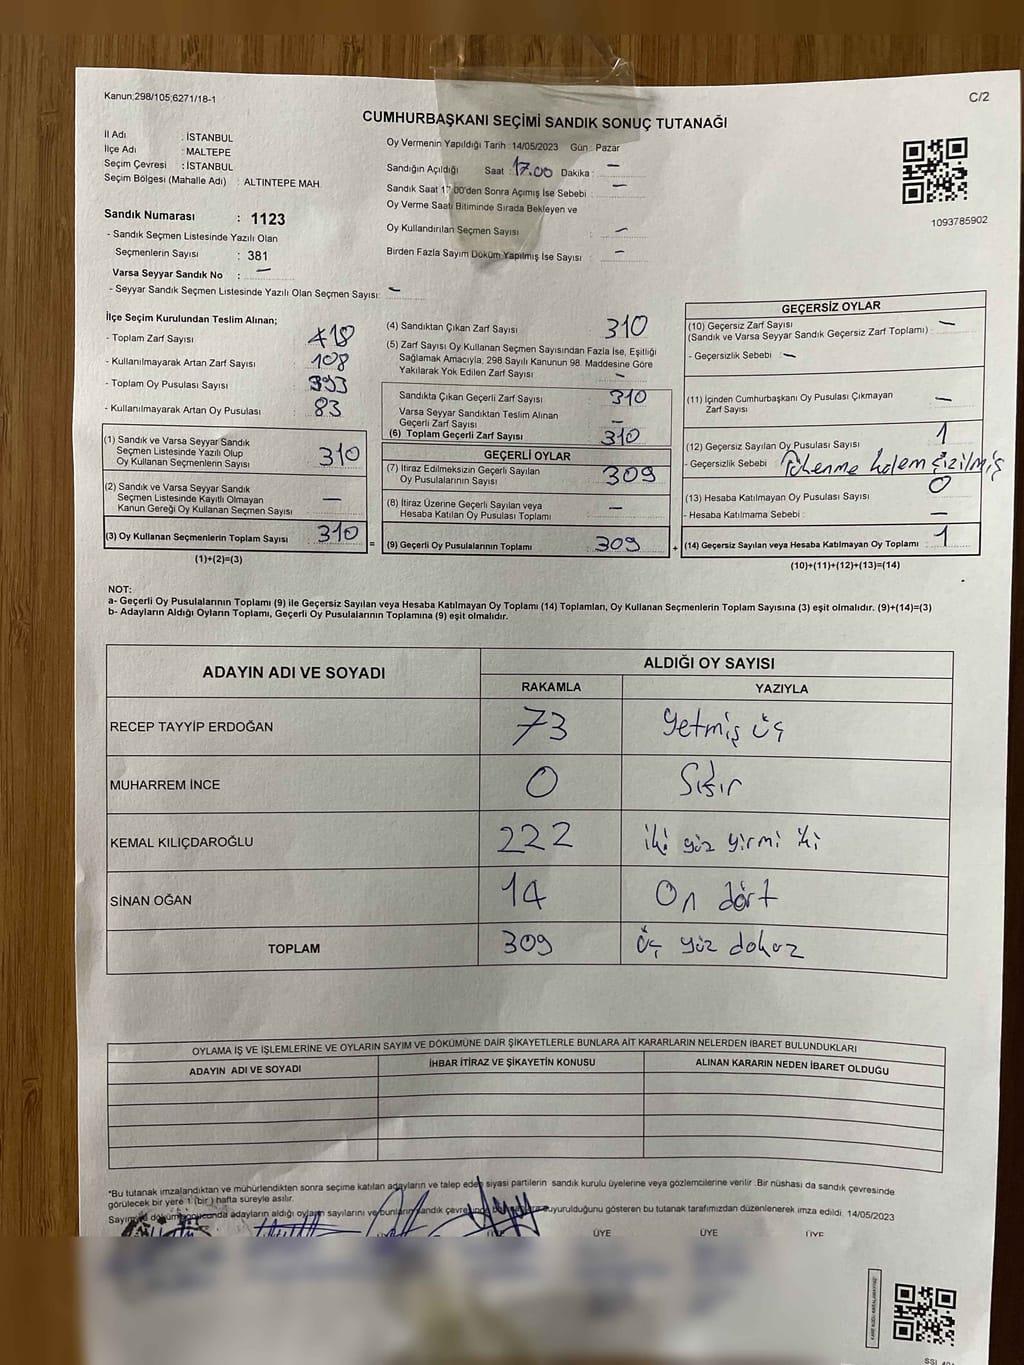 Kanun;298/105;6271/18-1
C/2
CUMHURBAŞKANI SEÇİMİ SANDIK SONUÇ TUTANAĞI
İl Adı : İSTANBUL
İlçe Adı : MALTEPE
Seçim Çevresi : İSTANBUL
Seçim Bölgesi (Mahalle Adı) : ALTINTEPE MAH.
Sandık Numarası : 1123
- Sandık Seçmen Listesinde Yazılı Olan
Seçmenlerin Sayısı : 381
Varsa Seyyar Sandık No : —
- Seyyar Sandık Seçmen Listesinde Yazılı Olan Seçmen Sayısı: —
Oy Vermenin Yapıldığı Tarih : 14/05/2023 Gün : Pazar
Sandığın Açıldığı Saat : 17.00 Dakika : —
Sandık Saat 17.00'den Sonra Açımış İse Sebebi : —
Oy Verme Saati Bitiminde Sırada Bekleyen ve
Oy Kullandırılan Seçmen Sayısı : —
Birden Fazla Sayım Döküm Yapılmış İse Sayısı : —
1093785902
İlçe Seçim Kurulundan Teslim Alınan;
- Toplam Zarf Sayısı 418
- Kullanılmayarak Artan Zarf Sayısı 108
- Toplam Oy Pusulası Sayısı 393
- Kullanılmayarak Artan Oy Pusulası 83
(1) Sandık ve Varsa Seyyar Sandık
Seçmen Listesinde Yazılı Olup
Oy Kullanan Seçmenlerin Sayısı 310
(2) Sandık ve Varsa Seyyar Sandık
Seçmen Listesinde Kayıtlı Olmayan
Kanun Gereği Oy Kullanan Seçmen Sayısı —
(3) Oy Kullanan Seçmenlerin Toplam Sayısı 310 =
(1)+(2)=(3)
(4) Sandıktan Çıkan Zarf Sayısı 310
(5) Zarf Sayısı Oy Kullanan Seçmen Sayısından Fazla İse, Eşitliği
Sağlamak Amacıyla; 298 Sayılı Kanunun 98. Maddesine Göre
Yakılarak Yok Edilen Zarf Sayısı —
Sandıkta Çıkan Geçerli Zarf Sayısı 310
Varsa Seyyar Sandıktan Teslim Alınan
Geçerli Zarf Sayısı —
(6) Toplam Geçerli Zarf Sayısı 310
GEÇERLİ OYLAR
(7) İtiraz Edilmeksizin Geçerli Sayılan
Oy Pusulalarının Sayısı 309
(8) İtiraz Üzerine Geçerli Sayılan veya
Hesaba Katılan Oy Pusulası Toplamı —
(9) Geçerli Oy Pusulalarının Toplamı 309 +
GEÇERSİZ OYLAR
(10) Geçersiz Zarf Sayısı —
(Sandık ve Varsa Seyyar Sandık Geçersiz Zarf Toplamı) :
- Geçersizlik Sebebi : —
(11) İçinden Cumhurbaşkanı Oy Pusulası Çıkmayan
Zarf Sayısı —
(12) Geçersiz Sayılan Oy Pusulası Sayısı 1
- Geçersizlik Sebebi : Tükenme kalem çizilmiş
(13) Hesaba Katılmayan Oy Pusulası Sayısı 0
- Hesaba Katılmama Sebebi : —
(14) Geçersiz Sayılan veya Hesaba Katılmayan Oy Toplamı 1
(10)+(11)+(12)+(13)=(14)
NOT:
a- Geçerli Oy Pusulalarının Toplamı (9) ile Geçersiz Sayılan veya Hesaba Katılmayan Oy Toplamı (14) Toplamları, Oy Kullanan Seçmenlerin Toplam Sayısına (3) eşit olmalıdır. (9)+(14)=(3)
b- Adayların Aldığı Oyların Toplamı, Geçerli Oy Pusulalarının Toplamına (9) eşit olmalıdır.
ADAYIN ADI VE SOYADI ALDIĞI OY SAYISI
RAKAMLA YAZIYLA
RECEP TAYYİP ERDOĞAN 73 Yetmiş üç
MUHARREM İNCE 0 Sıfır
KEMAL KILIÇDAROĞLU 222 iki yüz yirmi iki
SİNAN OĞAN 14 On dört
TOPLAM 309 üç yüz dokuz
OYLAMA İŞ VE İŞLEMLERİNE VE OYLARIN SAYIM VE DÖKÜMÜNE DAİR ŞİKAYETLERLE BUNLARA AİT KARARLARIN NELERDEN İBARET BULUNDUKLARI
ADAYIN ADI VE SOYADI İHBAR İTİRAZ VE ŞİKAYETİN KONUSU ALINAN KARARIN NEDEN İBARET OLDUĞU
*Bu tutanak imzalandıktan ve mühürlendikten sonra seçime katılan adayların ve talep eden siyasi partilerin sandık kurulu üyelerine veya gözlemcilerine verilir. Bir nüshası da sandık çevresinde
görülecek bir yere 1 (bir) hafta süreyle asılır.
adayların aldığı oyların sayılarını ve bunların sandık duyurulduğunu gösteren bu tutanak tarafımızdan düzenlenerek imza edildi. 14/05/2023
ÜYE ÜYE ÜYE